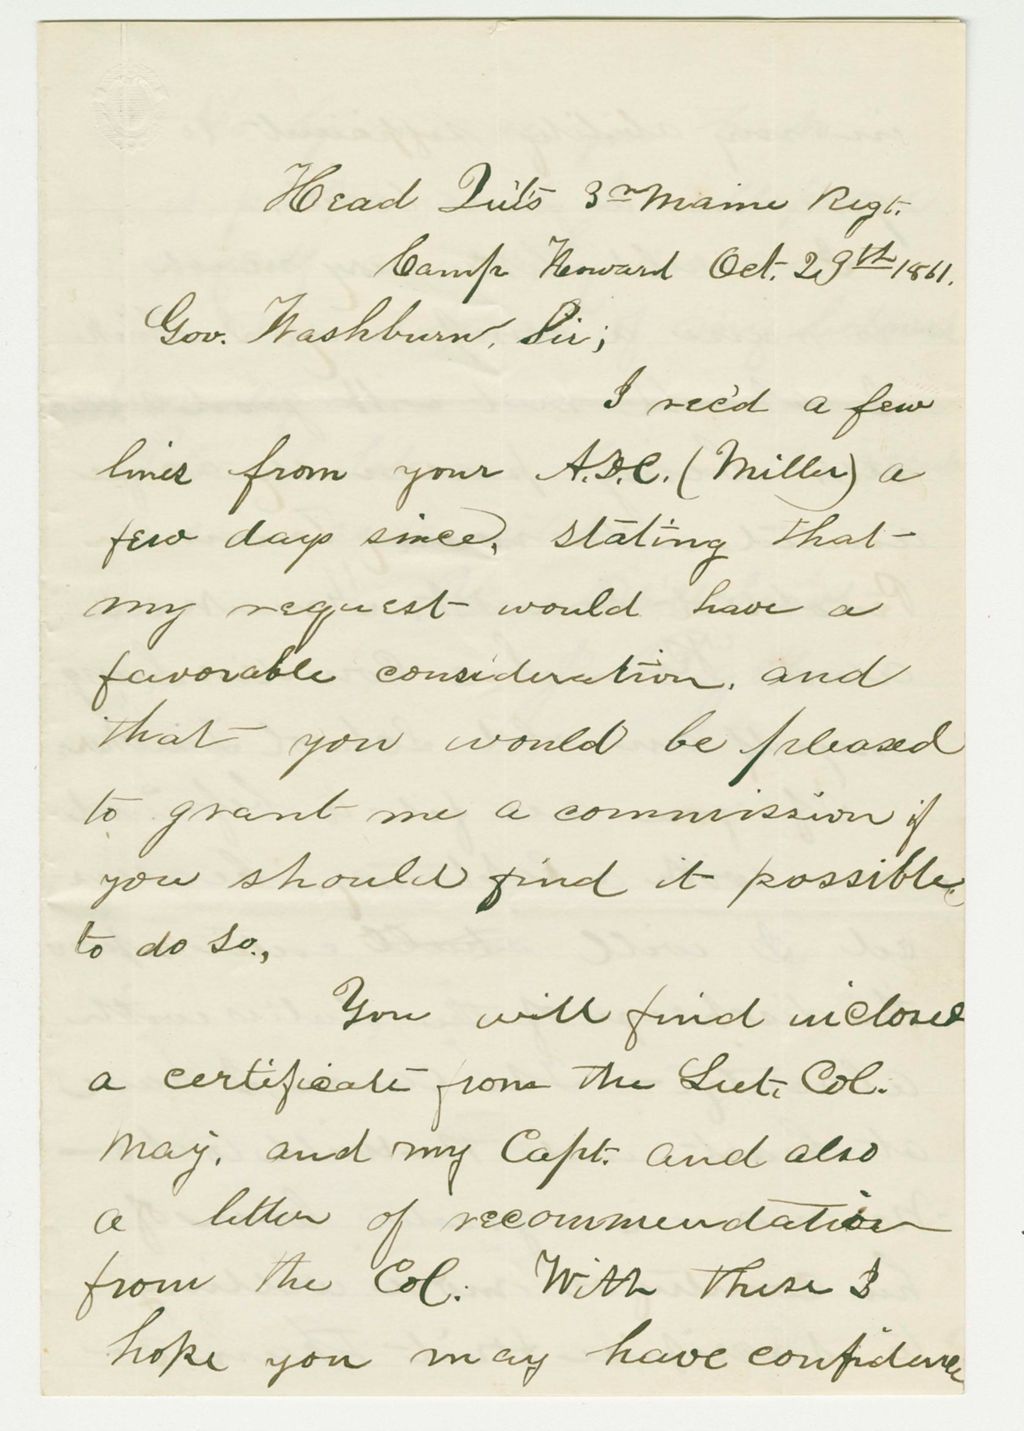 Head Qu'ts 3rd Maine Regt.
Camp Howard Oct. 29th 1861.
Gov. Washburn, Sir;
I rec'd a few
lines from your A.D.C. (Miller) a
few days since, stating that
my request would have a
favorable consideration, and
that you would be pleased
to grant me a commission if
you should find it possible
to do so.,
You will find inclosed
a certificate from the Leut. Col.
Maj. and my Capt. and also
a letter of recommendation
from the Col. With these I
hope you may have confidence